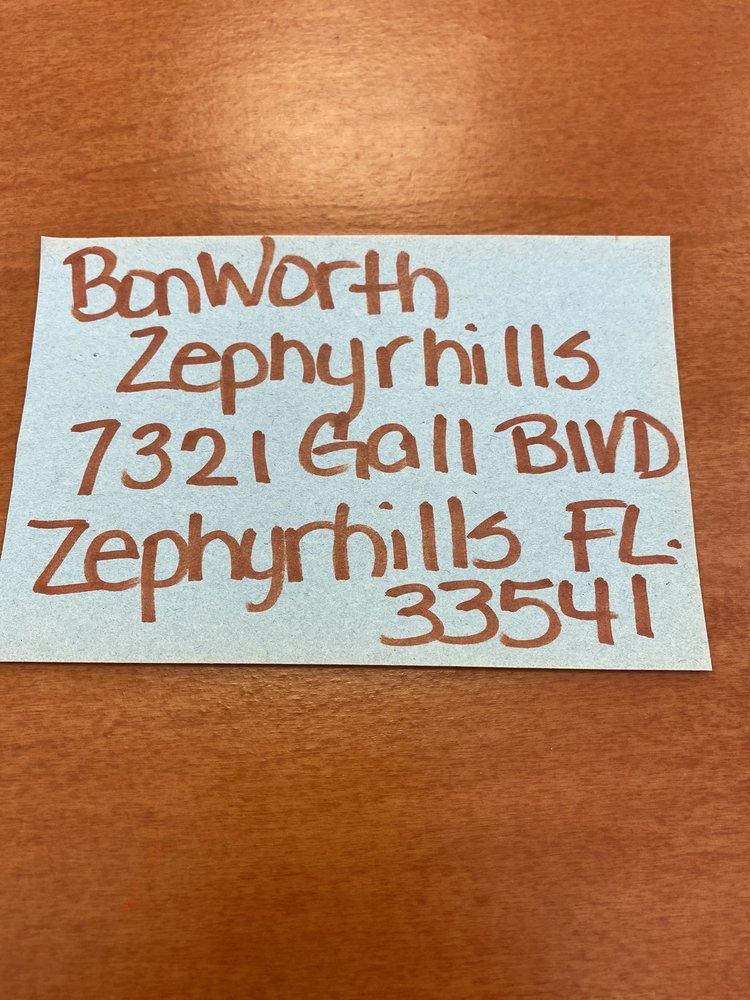 BonWorth
Zephyrhills
7321 Gall BlVD
Zephyrhills FL.
33541